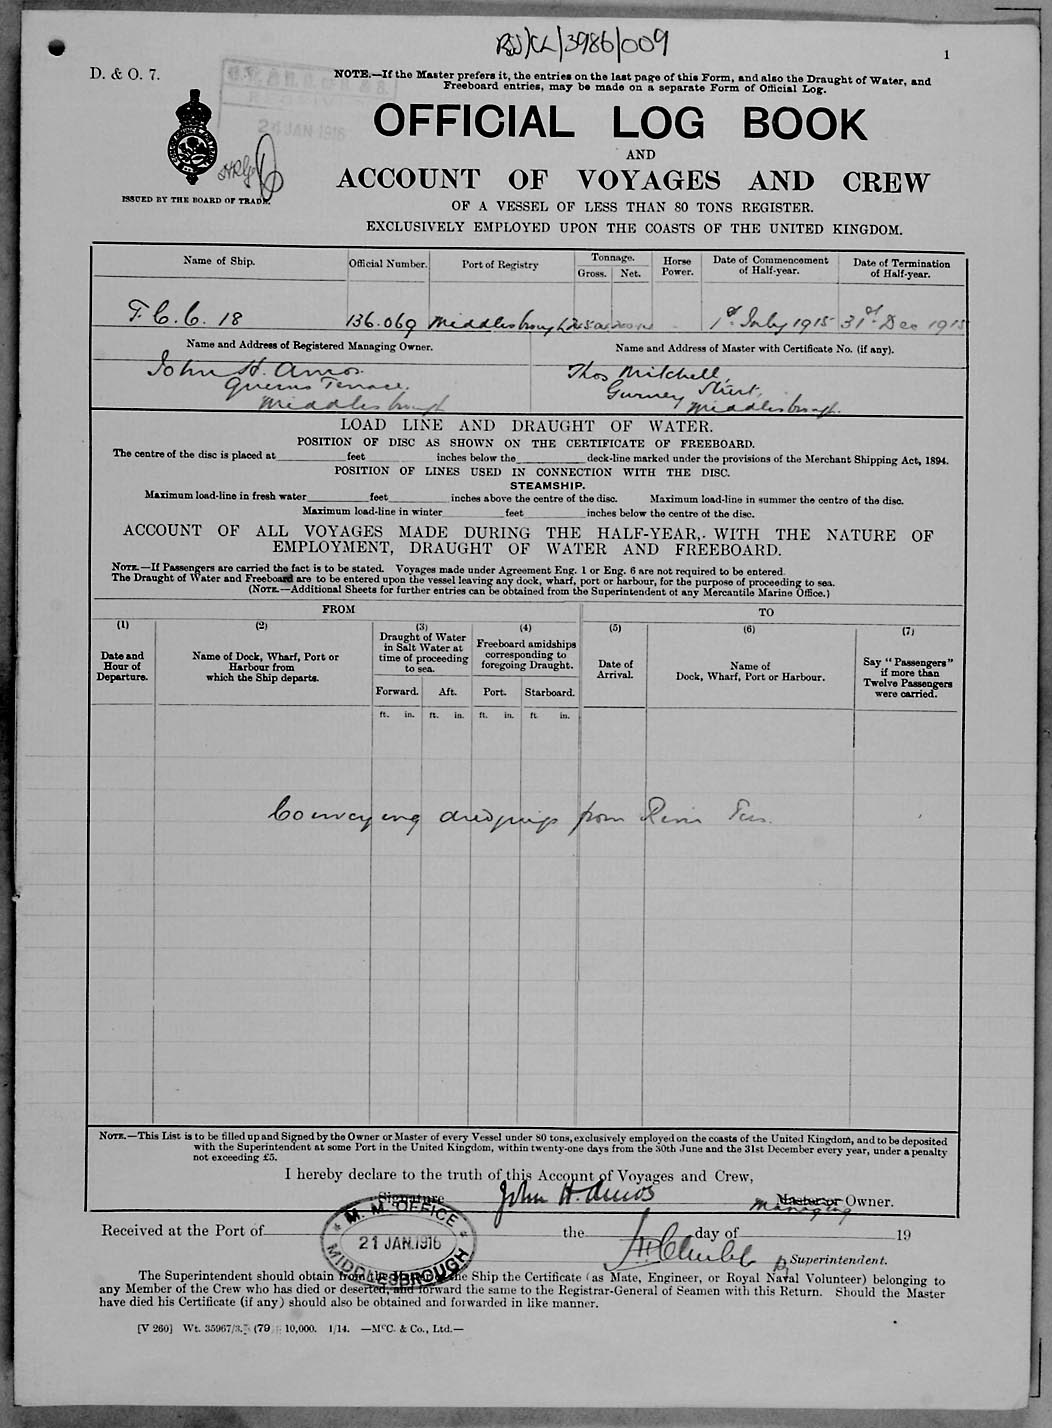 RSS/CL/3986/009
1
D. & O. 7.
NOTE.—If the Master prefers it, the entries on the last page of this Form, and also the Draught of Water, and
Freeboard entries, may be made on a separate Form of Official Log.
OFFICIAL LOG BOOK
JAN 1916
AND
ACCOUNT OF VOYAGES AND CREW
ISSUED BY THE BOARD OF TRADE.
OF A VESSEL OF LESS THAN 80 TONS REGISTER.
EXCLUSIVELY EMPLOYED UPON THE COASTS OF THE UNITED KINGDOM.
Name of Ship. Official Number. Port of Registry Tonnage. Gross. Net. Horse Power. Date of Commencement of Half-year. Date of Termination of Half-year.
T.C.C. 18 136.069 Middlesbrough 1st July 1915 31st Dec 1915
Name and Address of Registered Managing Owner. Name and Address of Master with Certificate No. (if any).
John H. Amos. Thos Mitchell,
Queens Terrace. Gurney Street,
Middlesbrough Middlesbrough.
LOAD LINE AND DRAUGHT OF WATER.
POSITION OF DISC AS SHOWN ON THE CERTIFICATE OF FREEBOARD.
The centre of the disc is placed at feet inches below the deck-line marked under the provisions of the Merchant Shipping Act, 1894.
POSITION OF LINES USED IN CONNECTION WITH THE DISC.
STEAMSHIP.
Maximum load-line in fresh water feet inches above the centre of the disc. Maximum load-line in summer the centre of the disc.
Maximum load-line in winter feet inches below the centre of the disc.
ACCOUNT OF ALL VOYAGES MADE DURING THE HALF-YEAR, WITH THE NATURE OF
EMPLOYMENT, DRAUGHT OF WATER AND FREEBOARD.
NOTE.—If Passengers are carried the fact is to be stated. Voyages made under Agreement Eng. 1 or Eng. 6 are not required to be entered.
The Draught of Water and Freeboard are to be entered upon the vessel leaving any dock, wharf, port or harbour, for the purpose of proceeding to sea.
(NOTE.—Additional Sheets for further entries can be obtained from the Superintendent of any Mercantile Marine Office.)
FROM TO
(1) (2) (3) (4) (5) (6) (7)
Date and Hour of Departure. Name of Dock, Wharf, Port or Harbour from which the Ship departs. Draught of Water in Salt Water at time of proceeding to sea. Freeboard amidships corresponding to foregoing Draught. Date of Arrival. Name of Dock, Wharf, Port or Harbour. Say "Passengers" if more than Twelve Passengers were carried.
Forward. Aft. Port. Starboard.
ft. in. ft. in. ft. in. ft. in.
Conveying dredgings from River Tees.
NOTE.—This List is to be filled up and Signed by the Owner or Master of every Vessel under 80 tons, exclusively employed on the coasts of the United Kingdom, and to be deposited
with the Superintendent at some Port in the United Kingdom, within twenty-one days from the 30th June and the 31st December every year, under a penalty
not exceeding £5.
I hereby declare to the truth of this Account of Voyages and Crew,
Signature John H. Amos Master or Owner.
Managing
M. M. OFFICE
Received at the Port of the day of 19
21 JAN. 1916
MIDDLESBROUGH
Superintendent.
The Superintendent should obtain from the the Ship the Certificate (as Mate, Engineer, or Royal Naval Volunteer) belonging to
any Member of the Crew who has died or deserted, and forward the same to the Registrar-General of Seamen with this Return. Should the Master
have died his Certificate (if any) should also be obtained and forwarded in like manner.
[V 260] Wt. 35967/3. (79 10,000. 1/14. —McC. & Co., Ltd.—